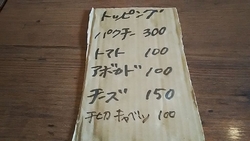 トッピング
パクチー 300
トマト 100
アボカド 100
チーズ 150
キャベツ 100